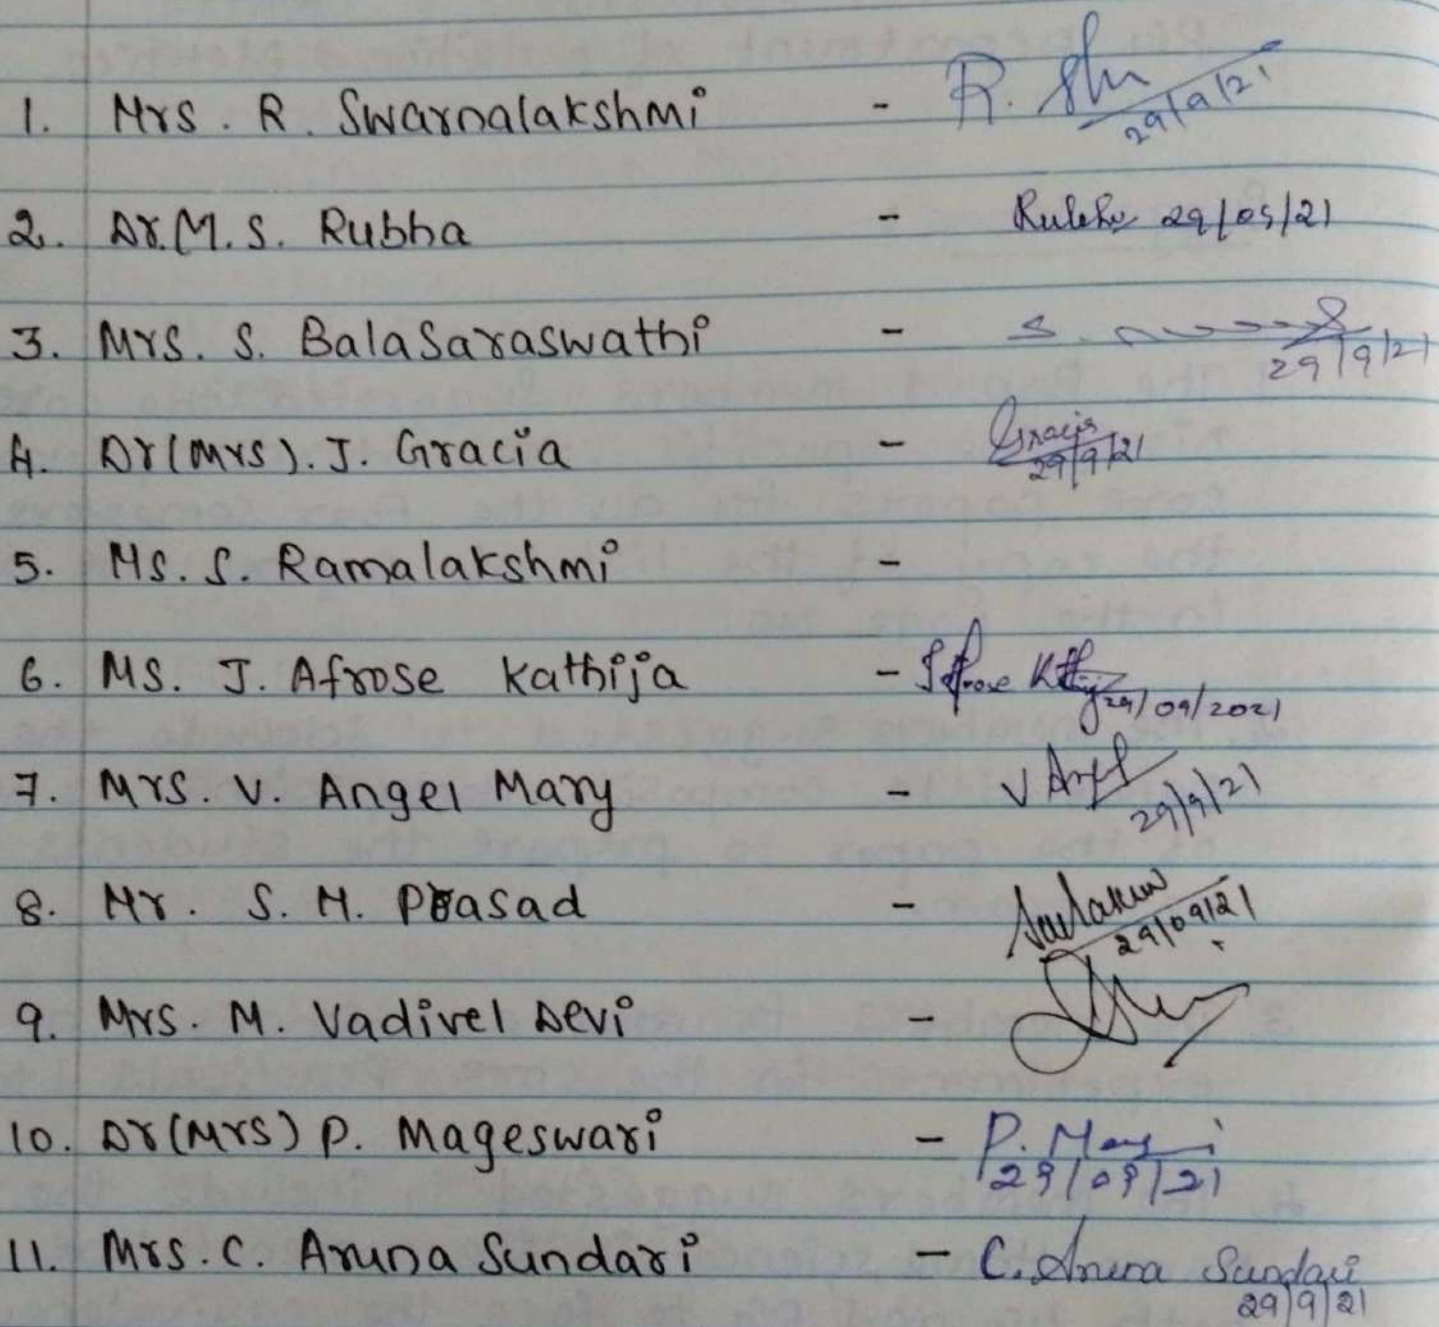 1. Mrs. R. Swarnalakshmi - R. 29/9/21
2. Dr. M. S. Rubha - 29/09/21
3. Mrs. S. BalaSaraswathi - S. 29/9/21
4. Dr(Mrs). J. Gracia - Gracia 29/9/21
5. Ms. S. Ramalakshmi -
6. Ms. J. Afrose Kathija - 29/09/2021
7. Mrs. V. Angel Mary - V Angel 29/9/21
8. Mr. S. M. Prasad - 29/09/21
9. Mrs. M. Vadivel Devi -
10. Dr(Mrs) P. Mageswari - P. 29/09/21
11. Mrs. C. Aruna Sundari - C. Aruna Sundari 29/9/21